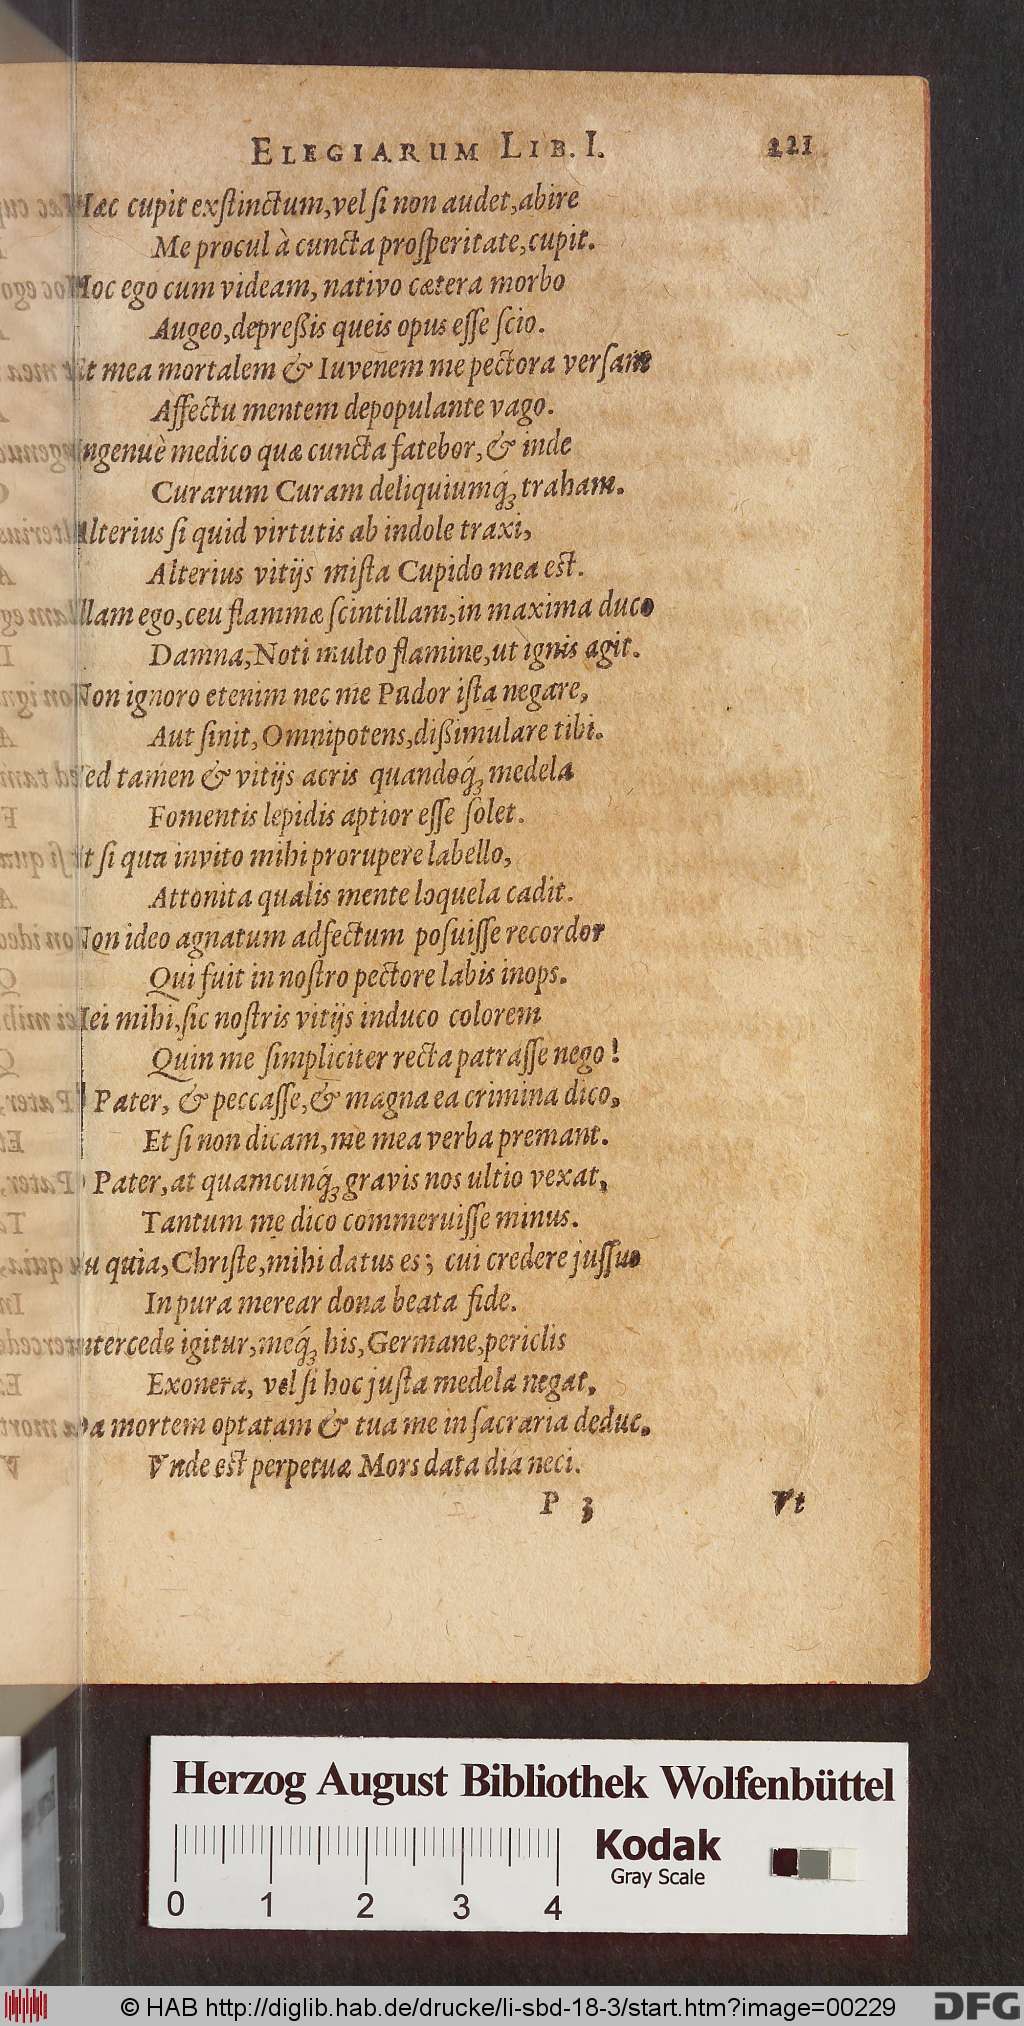 ELEGIARUM LIB. I. 221
Hæc cupit exſtinctum, vel ſi non audet, abire
Me procul à cuncta proſperitate, cupit.
Hoc ego cum videam, nativo cætera morbo
Augeo, depreßis queis opus eſſe ſcio.
Et mea mortalem & Iuvenem me pectora verſant
Affectu mentem depopulante vago.
Ingenuè medico quæ cuncta fatebor, & inde
Curarum Curam deliquiumq́; traham.
Alterius ſi quid virtutis ab indole traxi,
Alterius vitijs miſta Cupido mea eſt.
Illam ego, ceu flammæ ſcintillam, in maxima duco
Damna, Noti multo flamine, ut ignis agit.
Non ignoro etenim nec me Pudor iſta negare,
Aut ſinit, Omnipotens, dißimulare tibi.
Sed tamen & vitijs acris quandoq́; medela
Fomentis lepidis aptior eſſe ſolet.
Et ſi qua invito mihi prorupere labello,
Attonita qualis mente loquela cadit.
Non ideo agnatum adfectum poſuiſſe recordor
Qui fuit in noſtro pectore labis inops.
Hei mihi, ſic noſtris vitijs induco colorem
Quin me ſimpliciter recta patraſſe nego!
O Pater, & peccaſſe, & magna ea crimina dico,
Et ſi non dicam, me mea verba premant.
O Pater, at quamcunq́; gravis nos ultio vexat,
Tantum me dico commeruiſſe minus.
Tu quia, Chriſte, mihi datus es; cui credere juſſus
In pura merear dona beata fide.
Intercede igitur, meq́; his, Germane, periclis
Exonera, vel ſi hoc juſta medela negat,
Da mortem optatam & tua me in ſacraria deduc,
Vnde eſt perpetuæ Mors data dia neci.
P 3 Vt
Herzog August Bibliothek Wolfenbüttel
Kodak
Gray Scale
0 1 2 3 4
© HAB http://diglib.hab.de/drucke/li-sbd-18-3/start.htm?image=00229
DFG